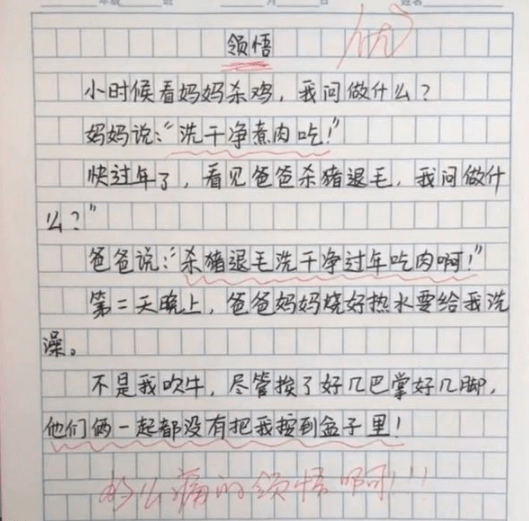 年级 班 月 日 姓名
领悟
优
小时候看妈妈杀鸡，我问做什么？
妈妈说："洗干净煮肉吃！"
快过年了，看见爸爸杀猪退毛，我问做什
么？"
爸爸说："杀猪退毛洗干净过年吃肉啊！"
第二天晚上，爸爸妈妈烧好热水要给我洗
澡。
不是我吹牛，尽管挨了好几巴掌好几脚，
他们俩一起都没有把我按到盆子里！
多么痛的领悟啊！！！